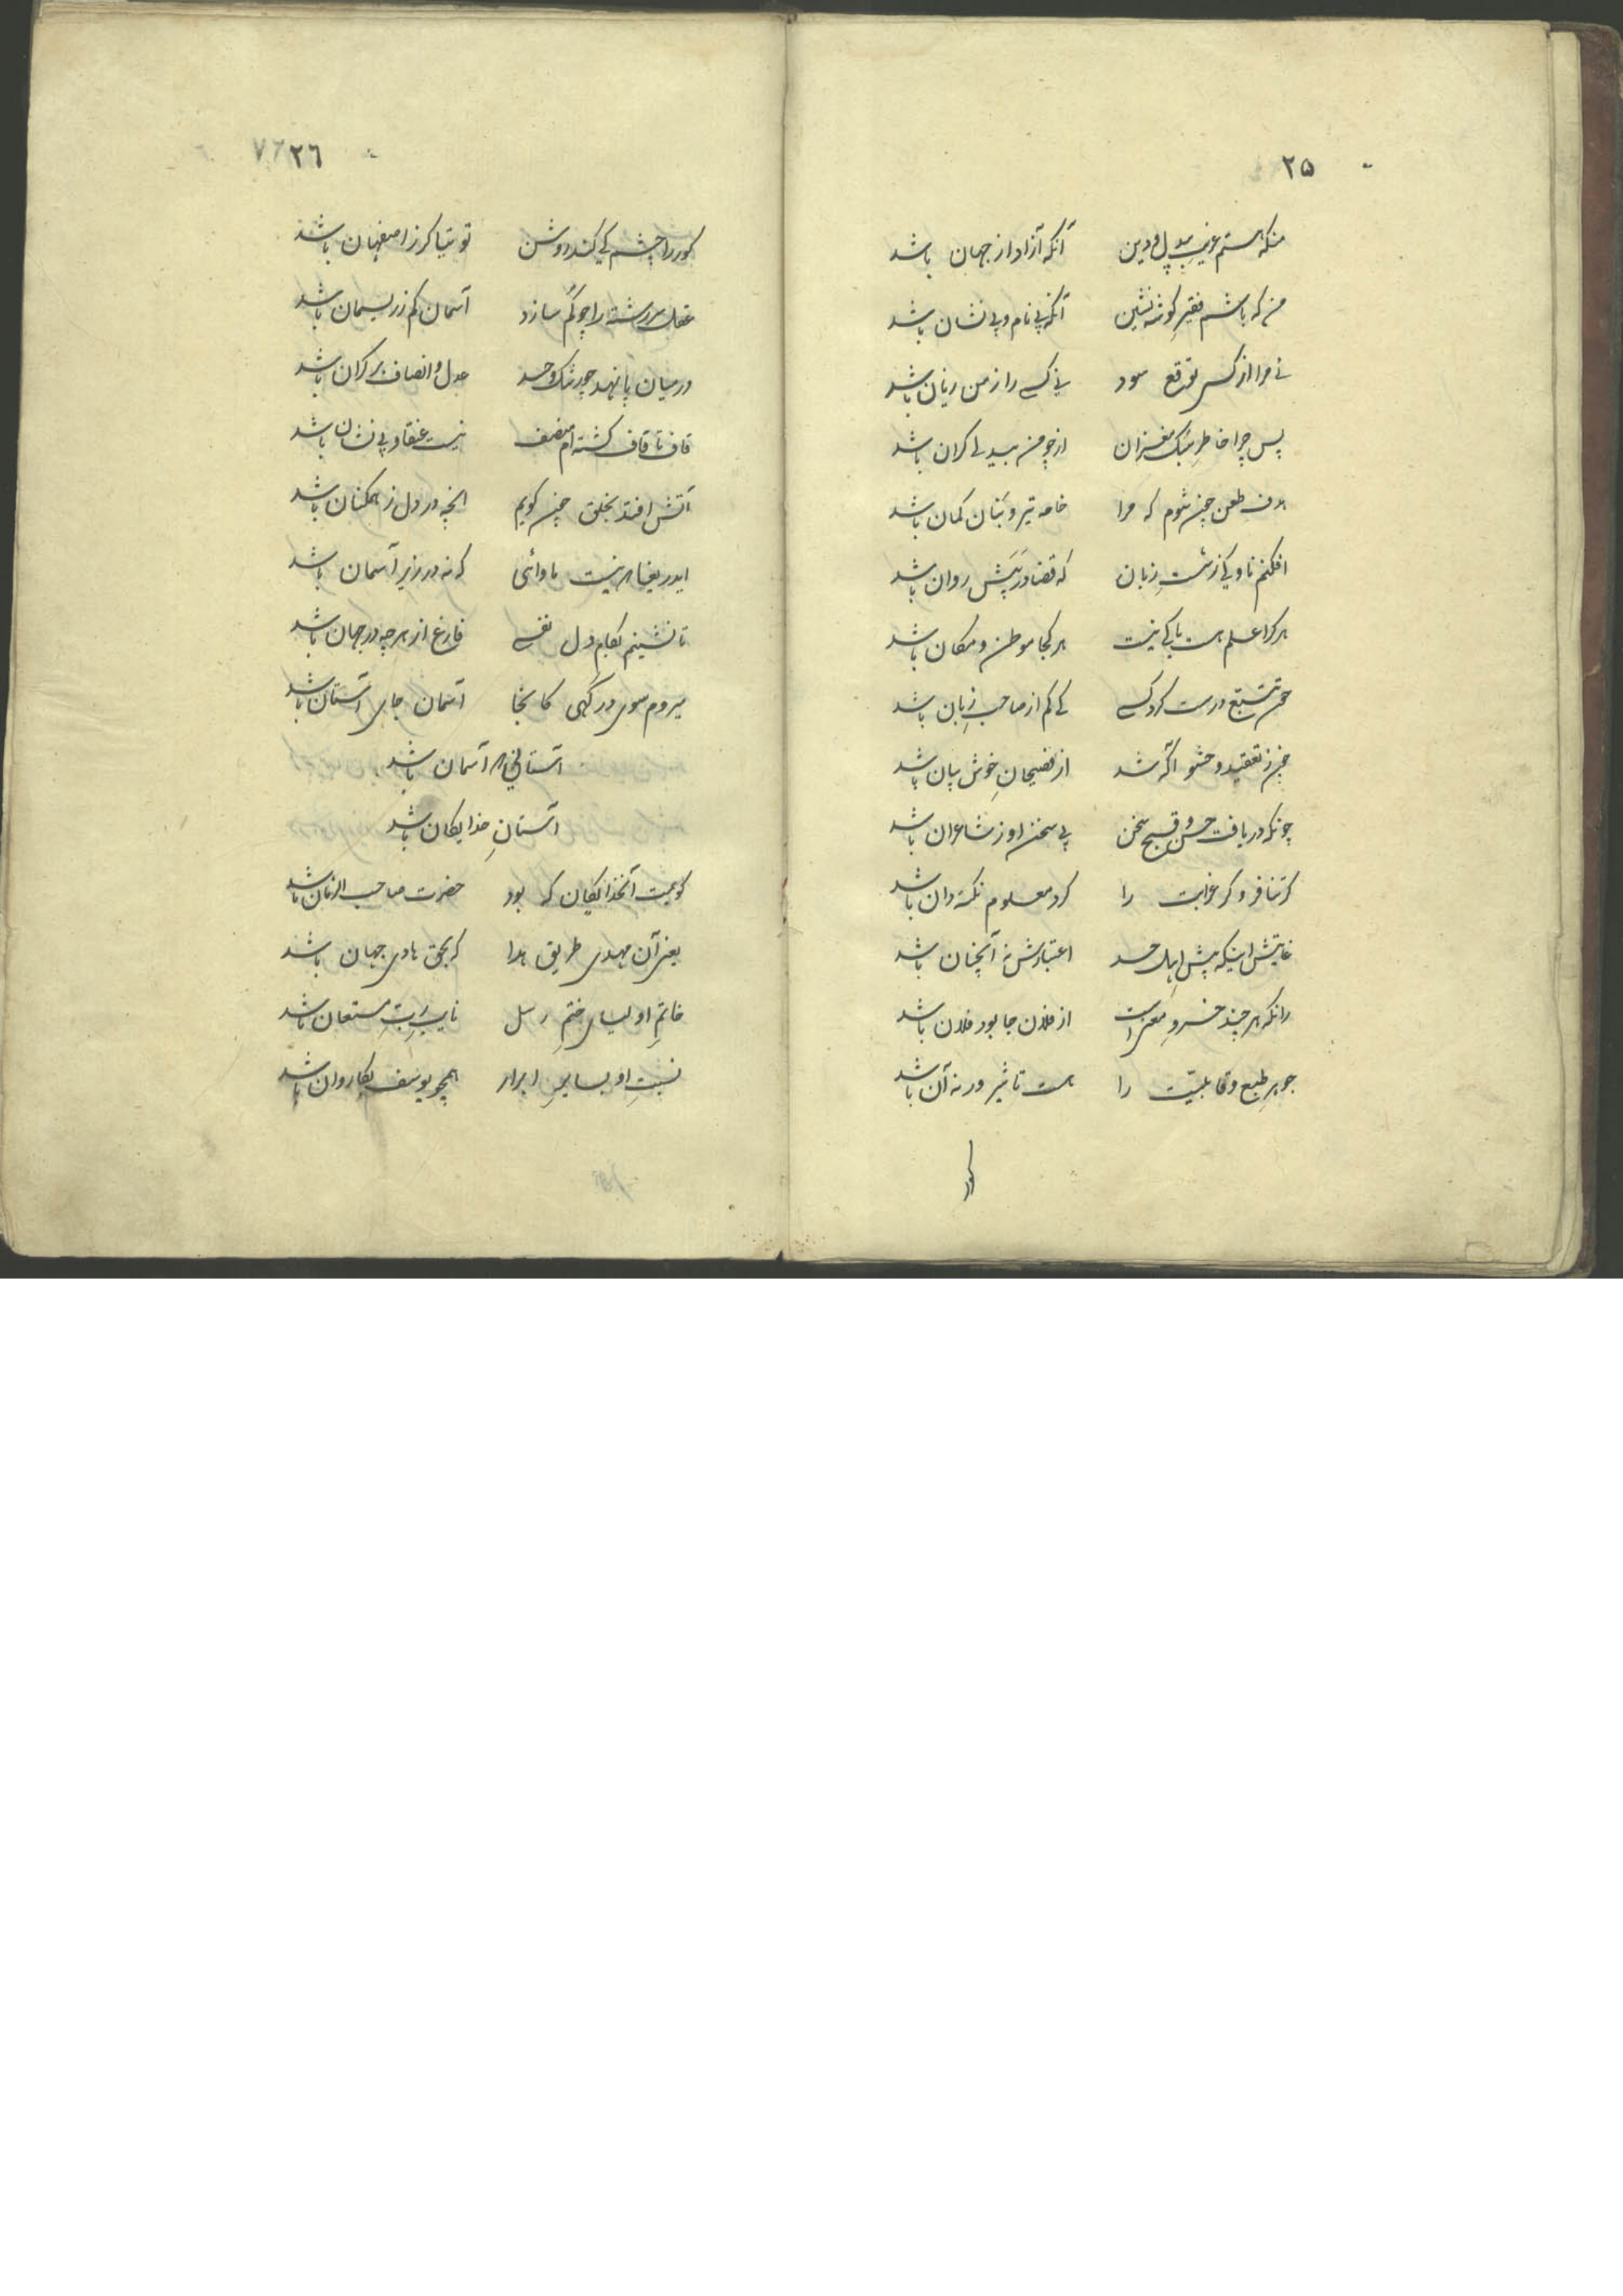 ۲۵
منکه هستم غریب بیدل و دین آنکه آزاد از جهان باشد
من که باشم فقیر گوشه نشین آنکه بی نام و بی نشان باشد
نی مرا از کسی توقع سود نی کسی را ز من زیان باشد
پس چرا خاطر سبک مغزان از چو من بیدلی گران باشد
هدف طعن چون شوم که مرا خامه تیر و بنان کمان باشد
افکنم ناوکی ز شست زبان که قضا در پیش روان باشد
هر کرا علم هست باکی نیست هر کجا موطن و مکان باشد
چون تتبع درست کرد کسی کی کم از صاحب زبان باشد
چون ز تعقید و حشو آگه شد از فصیحان خوش بیان باشد
چونکه دریافت حسن و قبح سخن بی سخن او ز شاعران باشد
گر تنافر و گر غرابت را کرد معلوم نکته دان باشد
غایتش اینکه پیش اهل حسد اعتبارش نه آنچنان باشد
زانکه هر چند خسرو معنی است از فلان جا بود فلان باشد
جوهر طبع و قابلیّت را هست تاثیر ور نه آن باشد
کور
۲۶
کور را چشم کی کند روشن توتیا گر ز اصفهان باشد
عقل سررشته را چو گم سازد آسمان کم ز ریسمان باشد
در میان پا نهد چو رشک و حسد عدل و انصاف بر کران باشد
قاف تا قاف گشته ام منصف نیست عنقا و بی نشان باشد
آتش افتد بخلق چون گویم آنچه در دل ز همگنان باشد
ای دریغا که نیست ماوائی که نه در زیر آسمان باشد
تا نشینم بکام دل نفسی فارغ از هر چه در جهان باشد
میروم سوی درگهی کانجا آسمان جای آستان باشد
آستانی نه آسمان باشد
آستان خدایگان باشد
کیست آنخدایگان که بود حضرت صاحب الزمان باشد
یعنی آن مهدی طریق هدا که بحق هادی جهان باشد
خاتم اولیای ختم رسل نایب رب مستعان باشد
نسبت او بسایر ابرار همچو یوسف بکاروان باشد